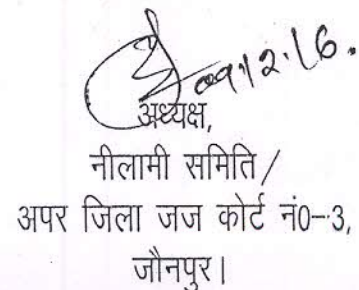 09.12.16.
अध्यक्ष,
नीलामी समिति/
अपर जिला जज कोर्ट नं0-3,
जौनपुर।